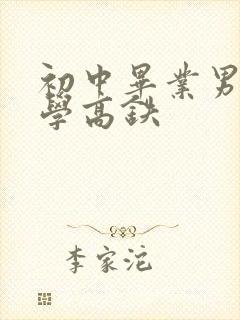 初中畢業男
學高鉄
李家沱